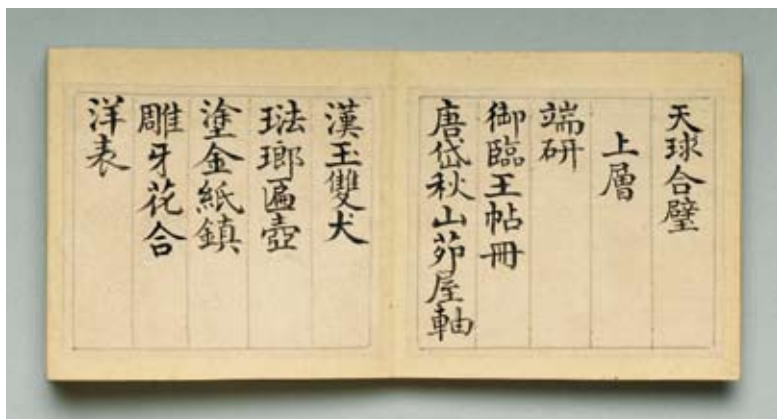 天球合璧
上層
端硏
御臨王帖冊
唐岱秋山茆屋軸
漢玉雙犬
琺瑯匾壺
塗金紙鎮
雕牙花合
洋表